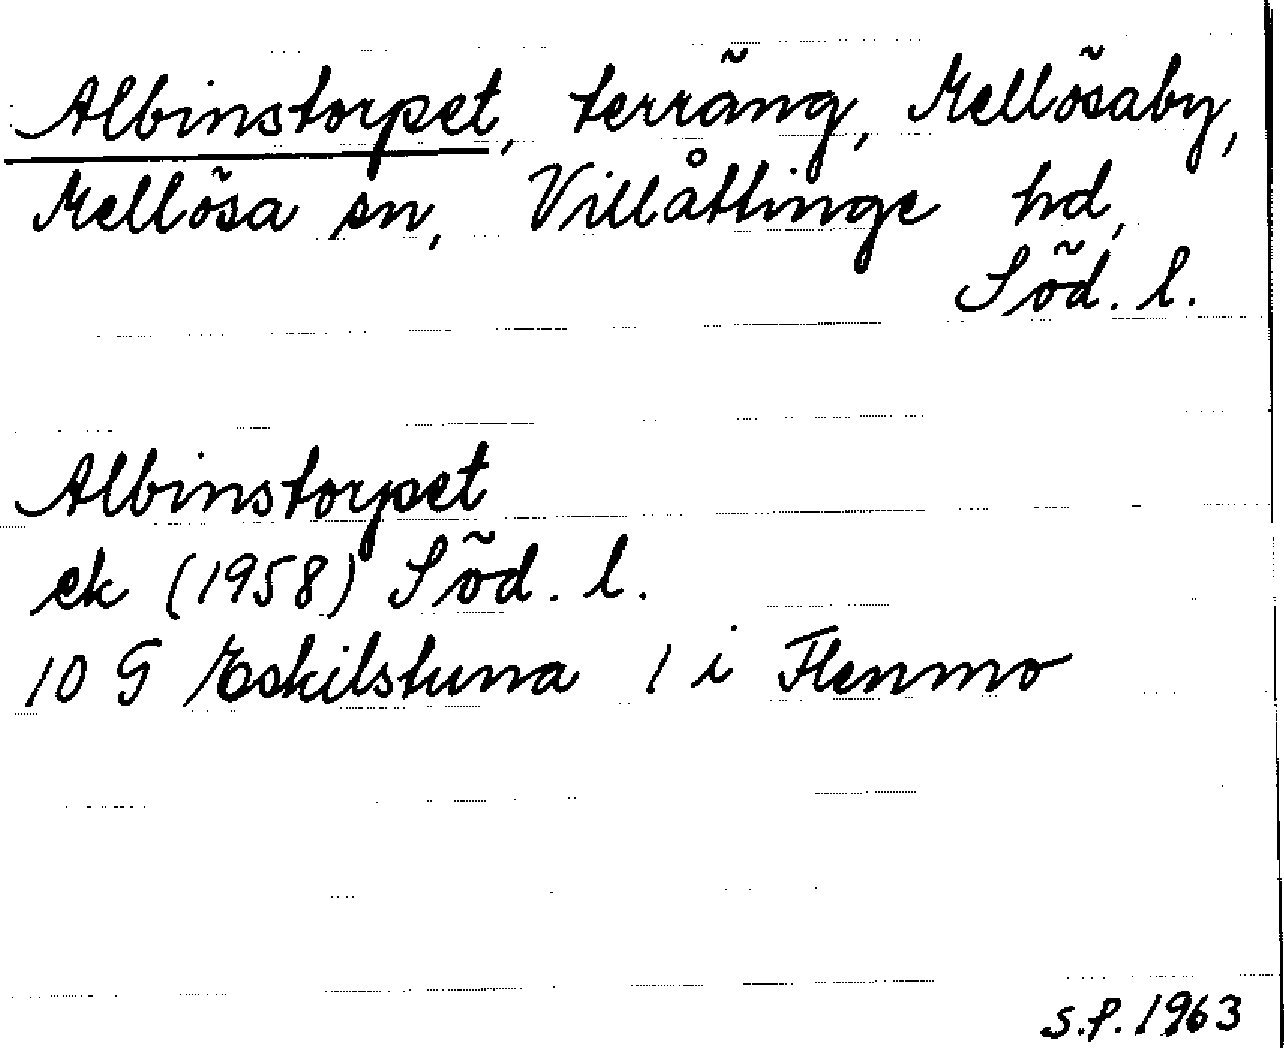 Albinstorpet, terräng, Mellösaby,
Mellösa sn, Villåttinge hd,
Söd. l.
Albinstorpet
ek (1958) Söd. l.
10 G Eskilstuna 1 i Flenmo
S.P. 1963